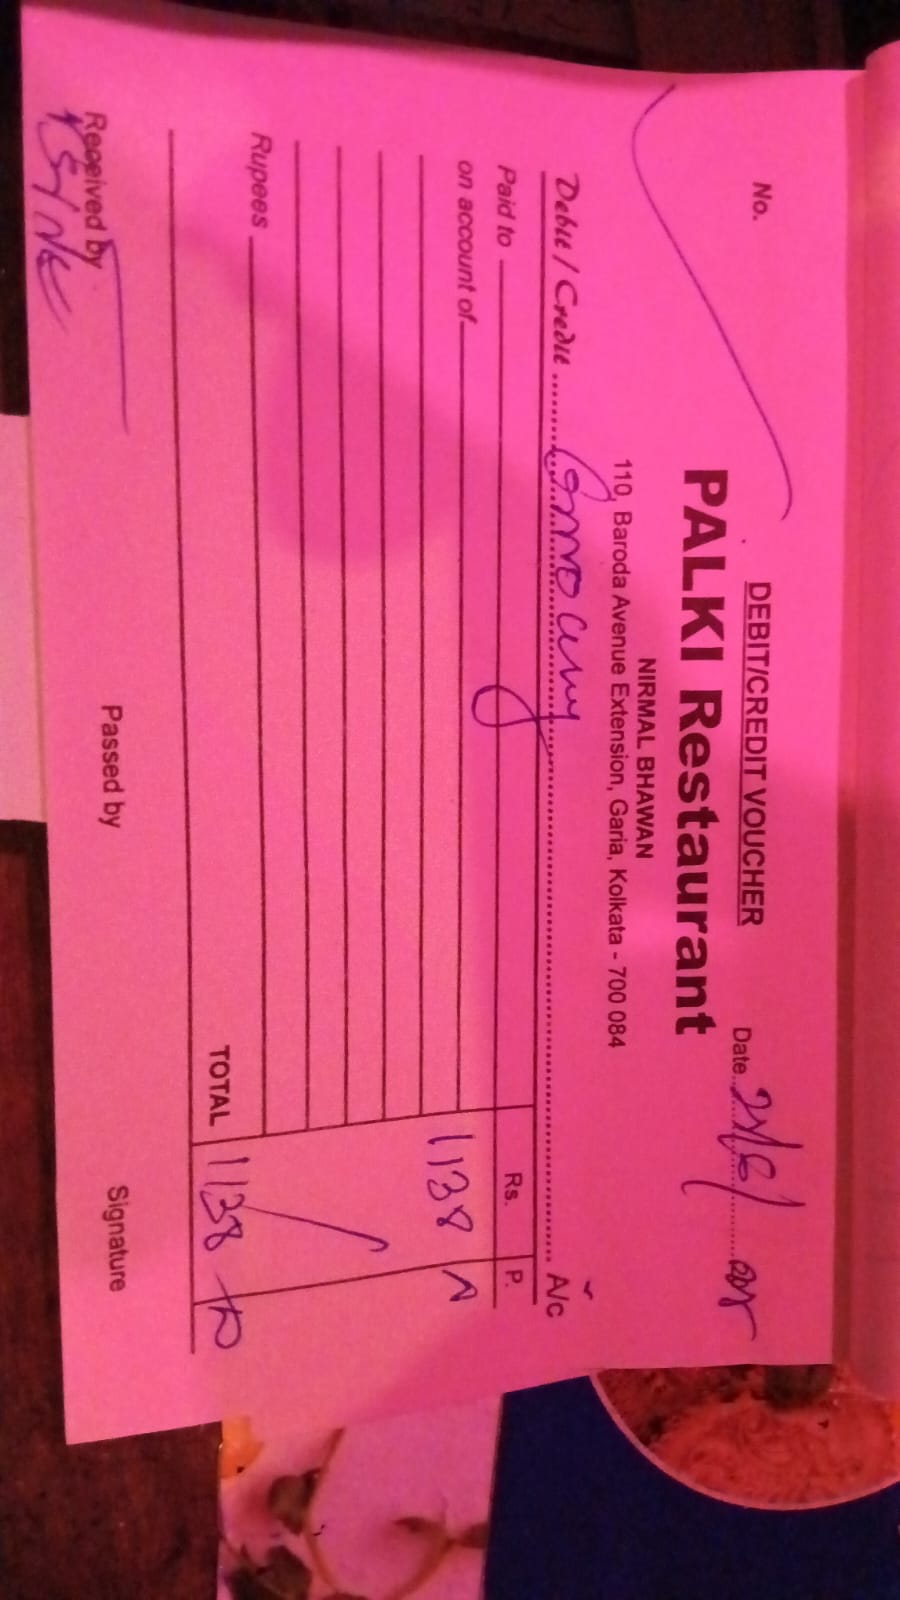 DEBIT/CREDIT VOUCHER
No.
Date
PALKI Restaurant
NIRMAL BHAWAN
110, Baroda Avenue Extension, Garia, Kolkata - 700 084
Debit / Credit A/c
Paid to Rs. P.
on account of
1138
Rupees
TOTAL 1138
Received by Passed by Signature